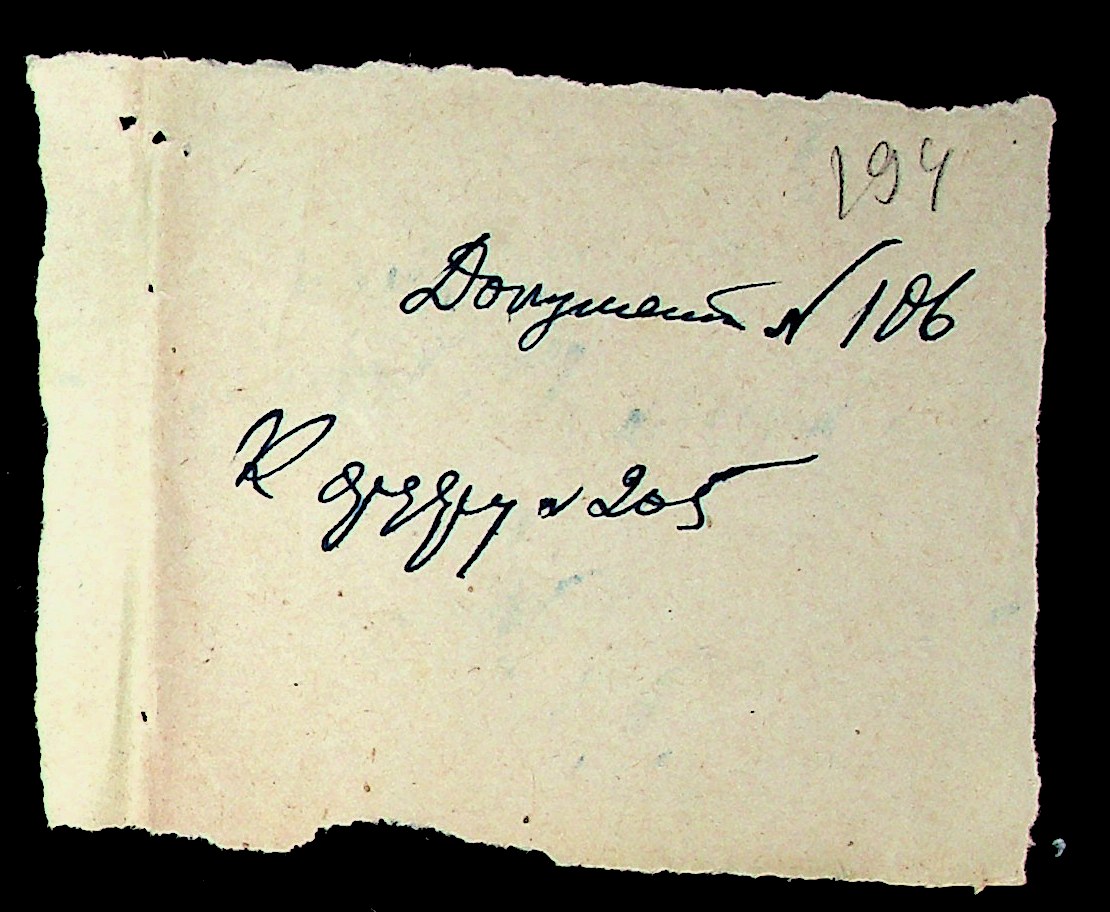 194
Документ № 106
К ордеру № 205